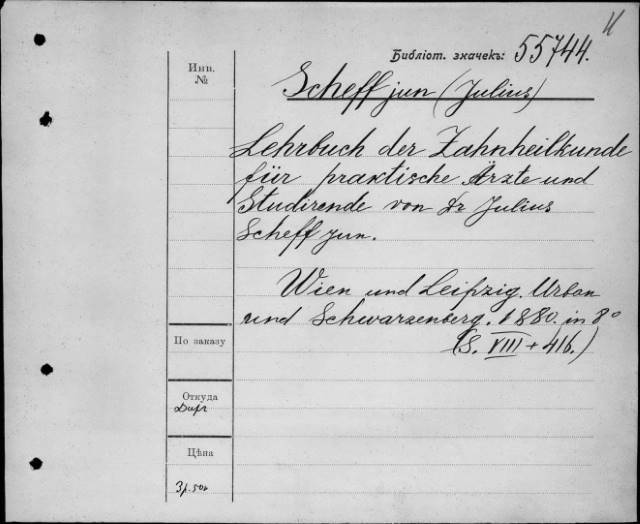 Библіот. значекъ: 55744.
Инв.
№
Scheff jun (Julius)
Lehrbuch der Zahnheilkunde
für praktische Ärzte und
Studirende von Dr Julius
Scheff jun.
Wien und Leipzig. Urban
und Schwarzenberg. 1880. in 8°
(S. VIII + 416.)
По заказу
Откуда
Цѣна
3р. 50к